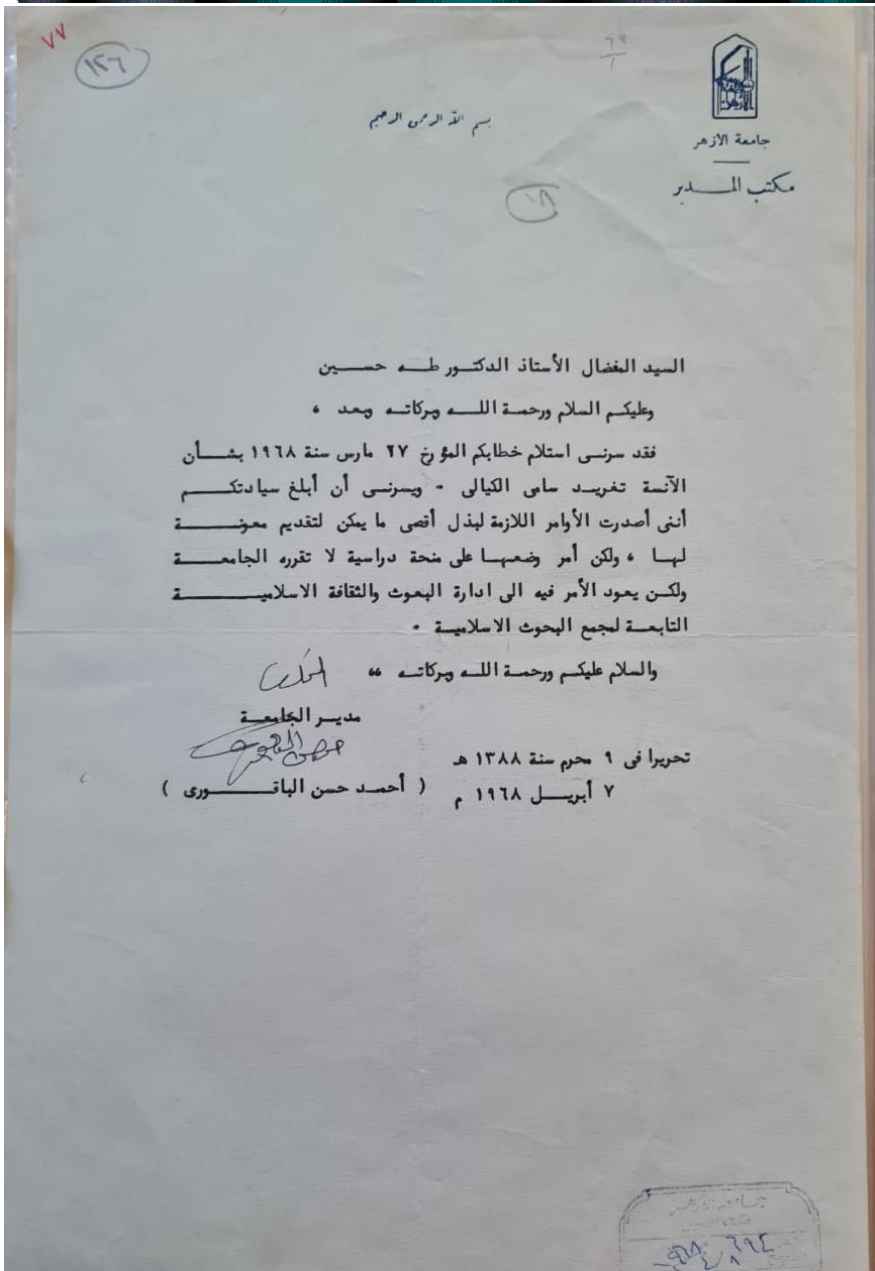 ٧٧
١٢٦
٦٩
١
جامعة الأزهر
مكتب المـــدير
بسم الله الرحمن الرحيم
١٨
السيد المفضال الأستاذ الدكتــور طــه حســـين
وعليكم السلام ورحمة اللــه وبركاتــه وبعد ،
فقد سرنــى استلام خطابكم المؤرخ ٢٧ مارس سنة ١٩٦٨ بشـــأن
الآنسة تغريــد سامى الكيالى - ويسرنــى أن أبلغ سيادتكـــم
أننى أصدرت الأوامر اللازمة لبذل أقصى ما يمكن لتقديم معونـــة
لهــا ، ولكن أمر وضعهــا على منحة دراسية لا تقرره الجامعـــة
ولكــن يعود الأمر فيه الى ادارة البعوث والثقافة الاسلاميـــة
التابعــة لمجمع البحوث الاسلاميــة .
والسلام عليكم ورحمة اللــه وبركاتــه ،،
مديــر الجامعــة
تحريرا فى ٩ محرم سنة ١٣٨٨ هـ
٧ أبريـــل ١٩٦٨ م
( أحمــد حسن الباقـــورى )
جامعة الأزهر
٦٩٤